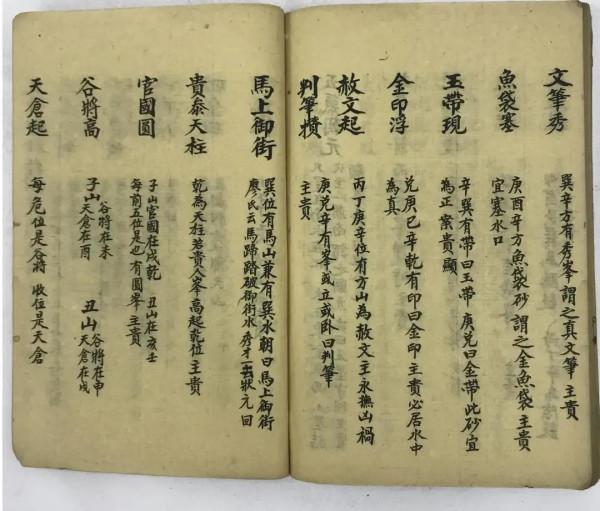 文筆秀
巽辛方有秀峯謂之真文筆主貴
魚袋塞
庚酉辛方魚袋砂謂之金魚袋主貴
宜塞水口
玉帶現
辛巽有帶曰玉帶庚兌曰金帶此砂宜
為正案貴顯
金印浮
兌庚巳辛乾有印曰金印主貴必居水中
為真
赦文起
丙丁庚辛位有方山為赦文主永無凶禍
判筆横
庚兌辛有峯或立或卧曰判筆
主貴
馬上御街
巽位有馬山兼有巽水朝曰馬上御街
廖氏云馬蹄踏破御街水秀才出去狀元回
貴泰天柱
乾為天柱若貴人峯高起乾位主貴
官國圓
子山官國在戌乾 丑山在亥壬
每前五位是也有圓峯主貴
谷將高
子山 谷將在未
天倉在酉
丑山 谷將在申
天倉在戌
天倉起
每危位是谷將 收位是天倉